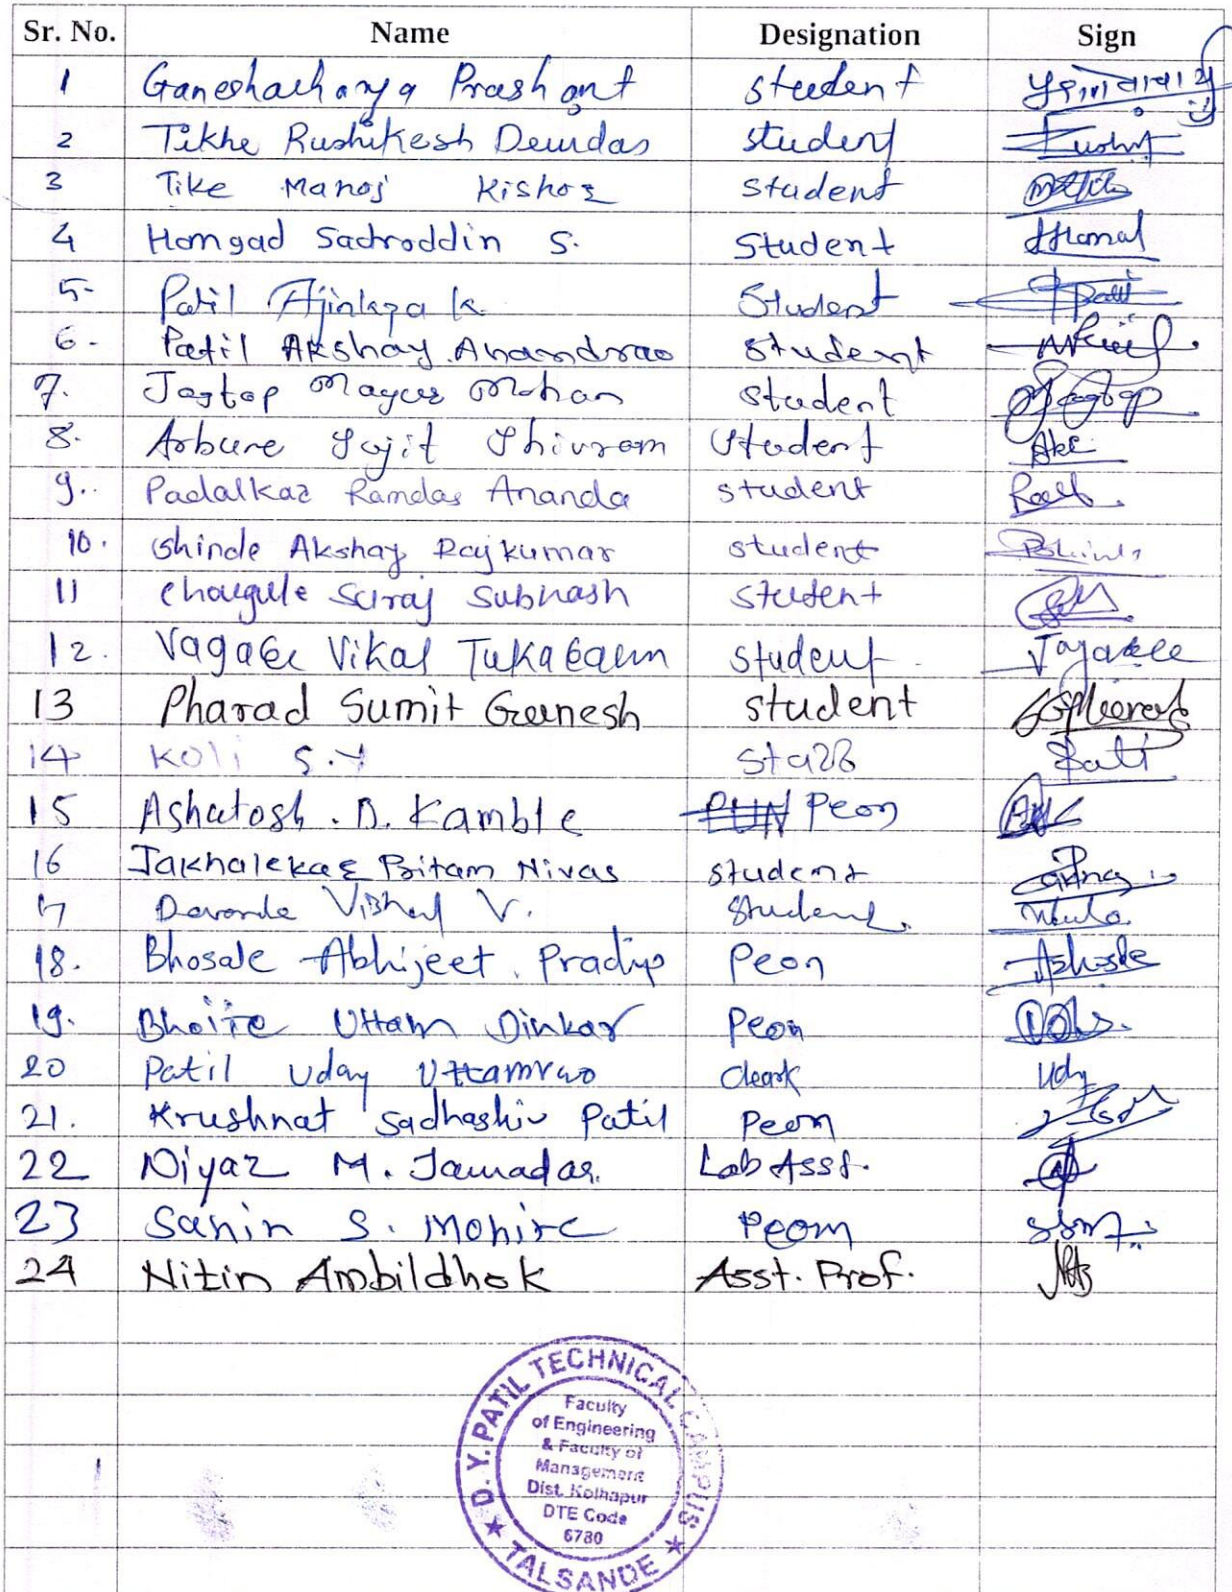 Sr. No. Name Designation Sign
1 Ganeshacharya Prashant student
2 Tikhe Rushikesh Devdas student
3 Tike Manoj Kishor student
4 Homgad Sadroddin S. Student
5- Patil Ajinkya K. Student Patil
6- Patil Akshay Anandrao student
7. Jagtap Mayur Mohan student Jagtap
8. Arbune Sujit Shivram Student
9.. Padalkar Ramdas Ananda student
10. Shinde Akshay Rajkumar student
11 Chougule Suraj Subhash student
12. Vagare Vikas Tukaram student
13 Pharad Sumit Gunesh student
14 Koli S. staff
15 Ashutosh . D. Kamble Peon
16 Jakhalekar Pritam Nivas student
17 Davande Vishal V. Student
18. Bhosale Abhijeet . Pradip Peon
19. Bhoite Uttam Dinkar Peon
20 Patil Uday Uttamrao Cleark Udy
21. Krushnat Sadhashiv Patil Peon
22 Niyaz M. Jamadar. Lab Asst.
23 Sanin S. Mohire Peom SSM
24 Nitin Ambildhok Asst. Prof.
D. Y. PATIL TECHNICAL CAMPUS
Faculty
of Engineering
& Faculty of
Management
Dist. Kolhapur
DTE Code
6780
★ TALSANDE ★